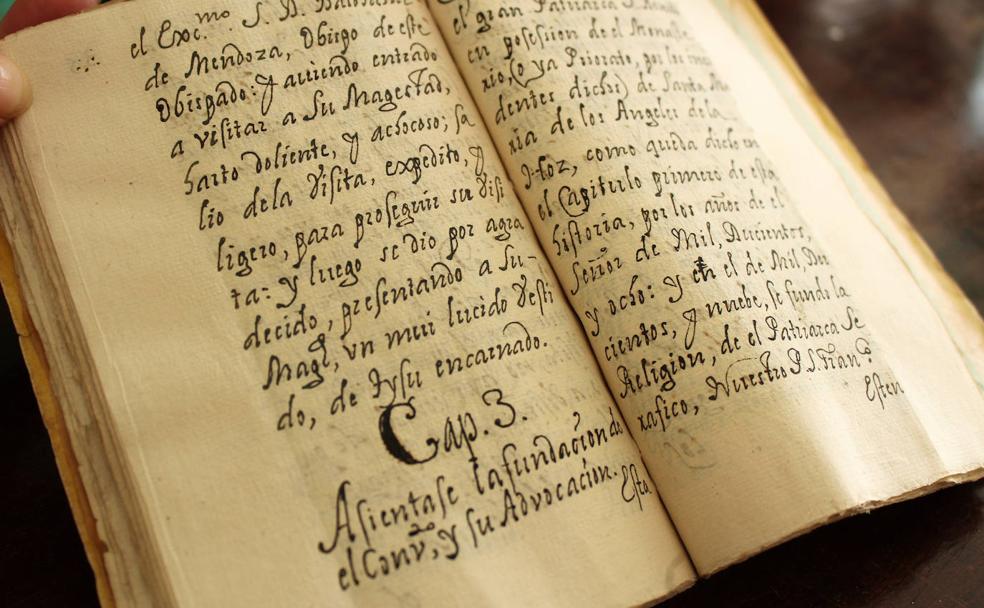 el Exc.mo S. D. Baltasar
de Mendoza, Obispo de este
Obispado: Y auiendo entrado
a visitar a Su Magestad,
harto doliente, y achocoso; sa
lio dela Visita, expedito, y
ligero, para proseguir su Visi
ta: y luego se dio por agra
decido, presentando a Su
Magd, vn mui lucido Vesti
do, de tysu encarnado.
Cap. 3.
Asientase la fundacion de
el Conv.o, y su Advocacion.
Esta
el gran Patriarca S.
en posession de el Monaste
rio, (o ya Priorato, por los
dentes dichos) de Santa Ma
ria de los Angeles de la
Hoz, como queda dicho en
el Capitulo primero de esta
historia, por los años de el
Señor de Mil, Ducientos,
y ocho: y en el de Mil, Duc
cientos, y nuebe, se fundò la
Religion, de el Patriarca Se
rafico, Nuestro P. S. Fran.co
Esten